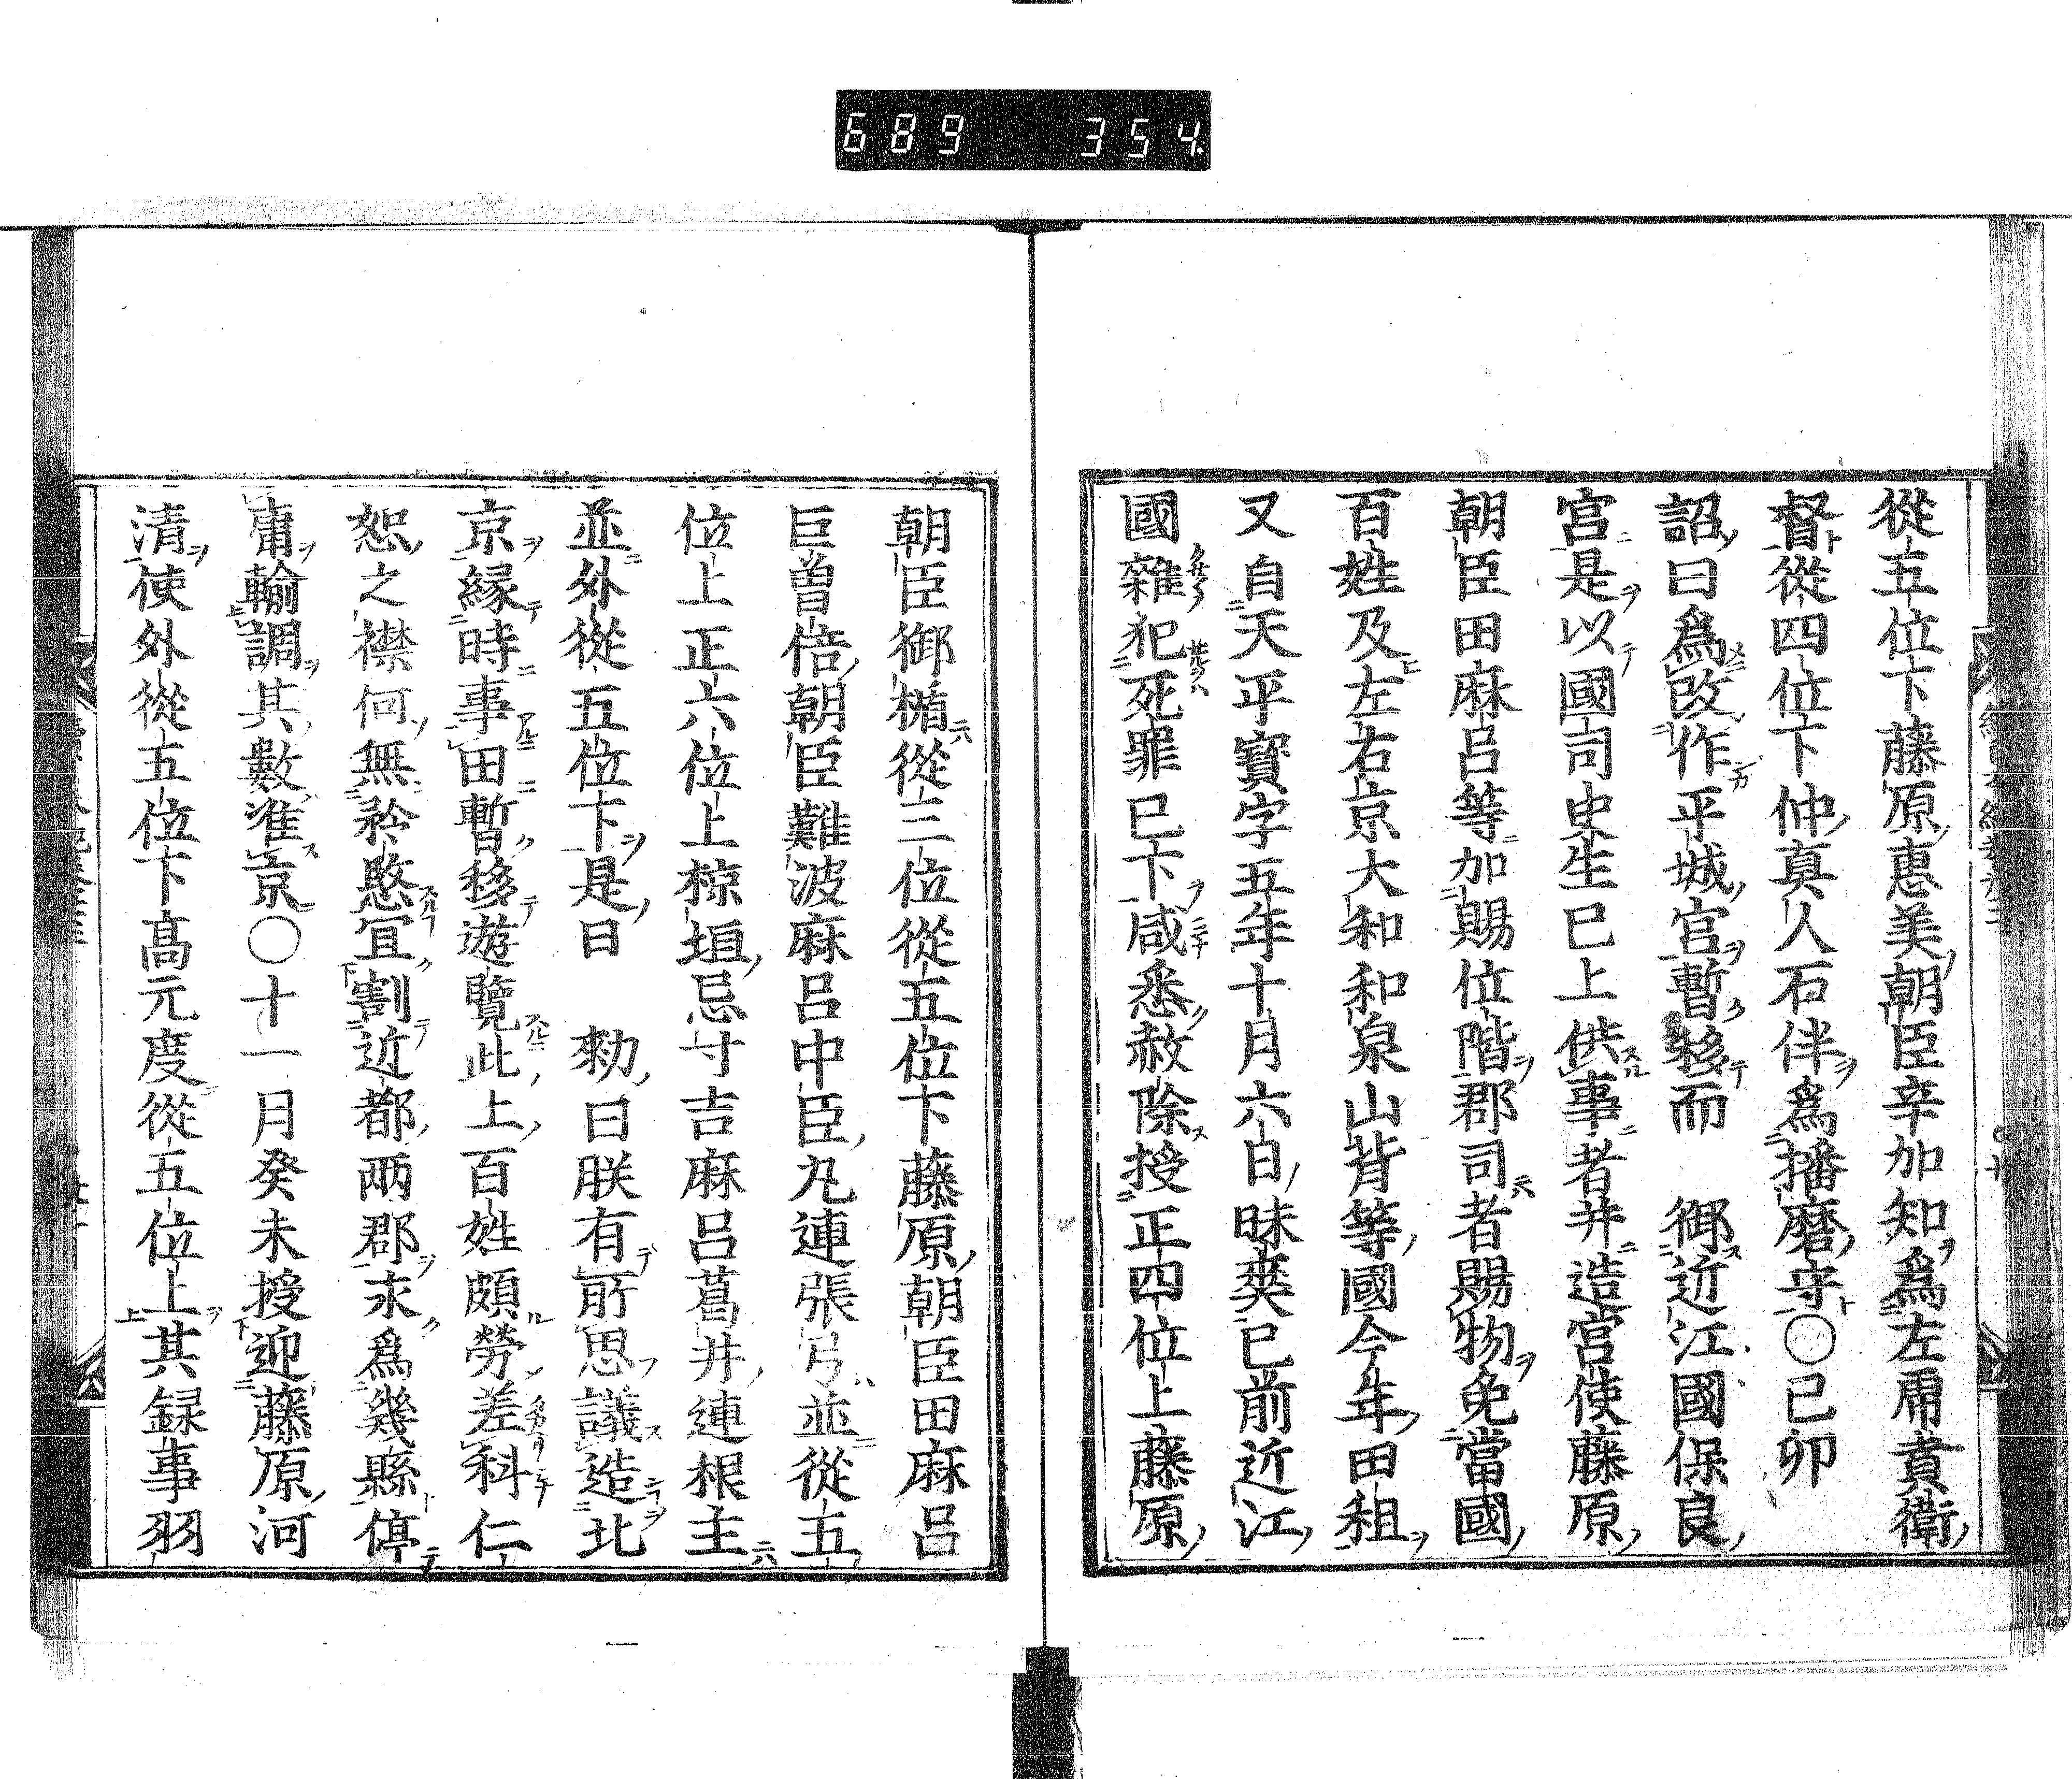 689 354.
從五位下藤原惠美朝臣辛加知爲左虎賁衛
督從四位下仲真人石伴爲播磨守〇己卯
詔曰爲改作平城宮暫移而 御近江國保良
宮是以國司史生已上供事者并造宮使藤原
朝臣田麻呂等加賜位階郡司者賜物免當國
百姓及左右京大和和泉山背等國今年田租
又自天平寶字五年十月六日昧爽已前近江
國雜犯死罪已下咸悉赦除授正四位上藤原
朝臣御楯從三位從五位下藤原朝臣田麻呂
巨曾倍朝臣難波麻呂中臣丸連張弓並從五
位上正六位上椋垣忌寸吉麻呂葛井連根主
並外從五位下是日 勅曰朕有所思議造北
京縁時事由暫移遊覽此土百姓頗勞差科仁
恕之襟何無矜愍宜割近都兩郡永爲畿縣停
庸輸調其數准京〇十一月癸未授迎藤原河
清使外從五位下高元度從五位上其録事羽